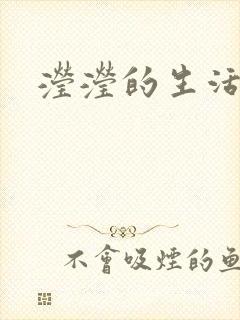 瀅瀅的生活
不會吸煙的魚